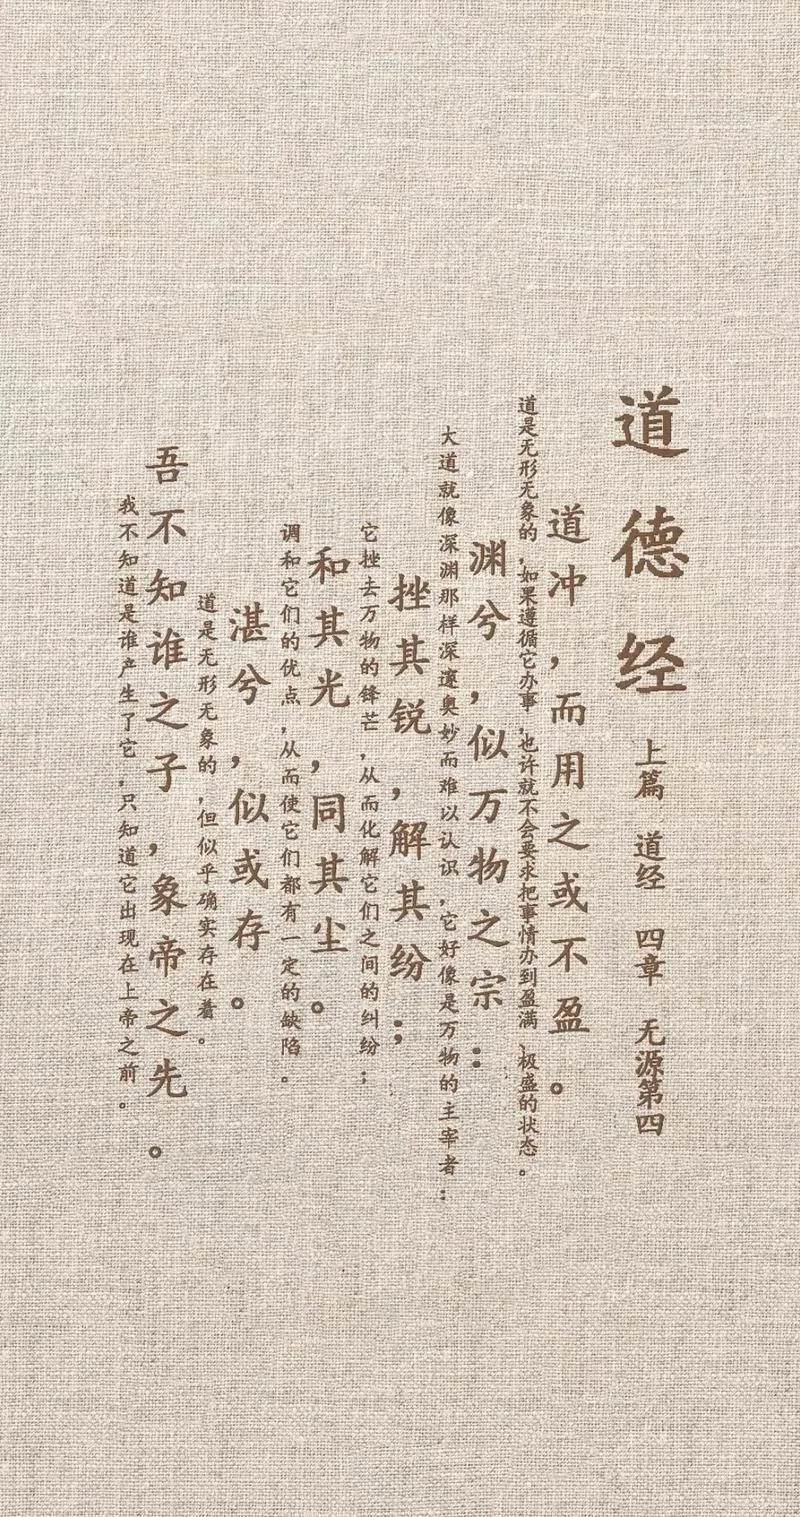 道德经 上篇 道经 四章 无源第四
道冲，而用之或不盈。
道是无形无象的，如果遵循它办事，也许就不会要求把事情办到盈满、极盛的状态。
渊兮，似万物之宗：
大道就像深渊那样深邃奥妙而难以认识，它好像是万物的主宰者：
挫其锐，解其纷；
它挫去万物的锋芒，从而化解它们之间的纠纷；
和其光，同其尘。
调和它们的优点，从而使它们都有一定的缺陷。
湛兮，似或存。
道是无形无象的，但似乎确实存在着。
吾不知谁之子，象帝之先。
我不知道是谁产生了它，只知道它出现在上帝之前。